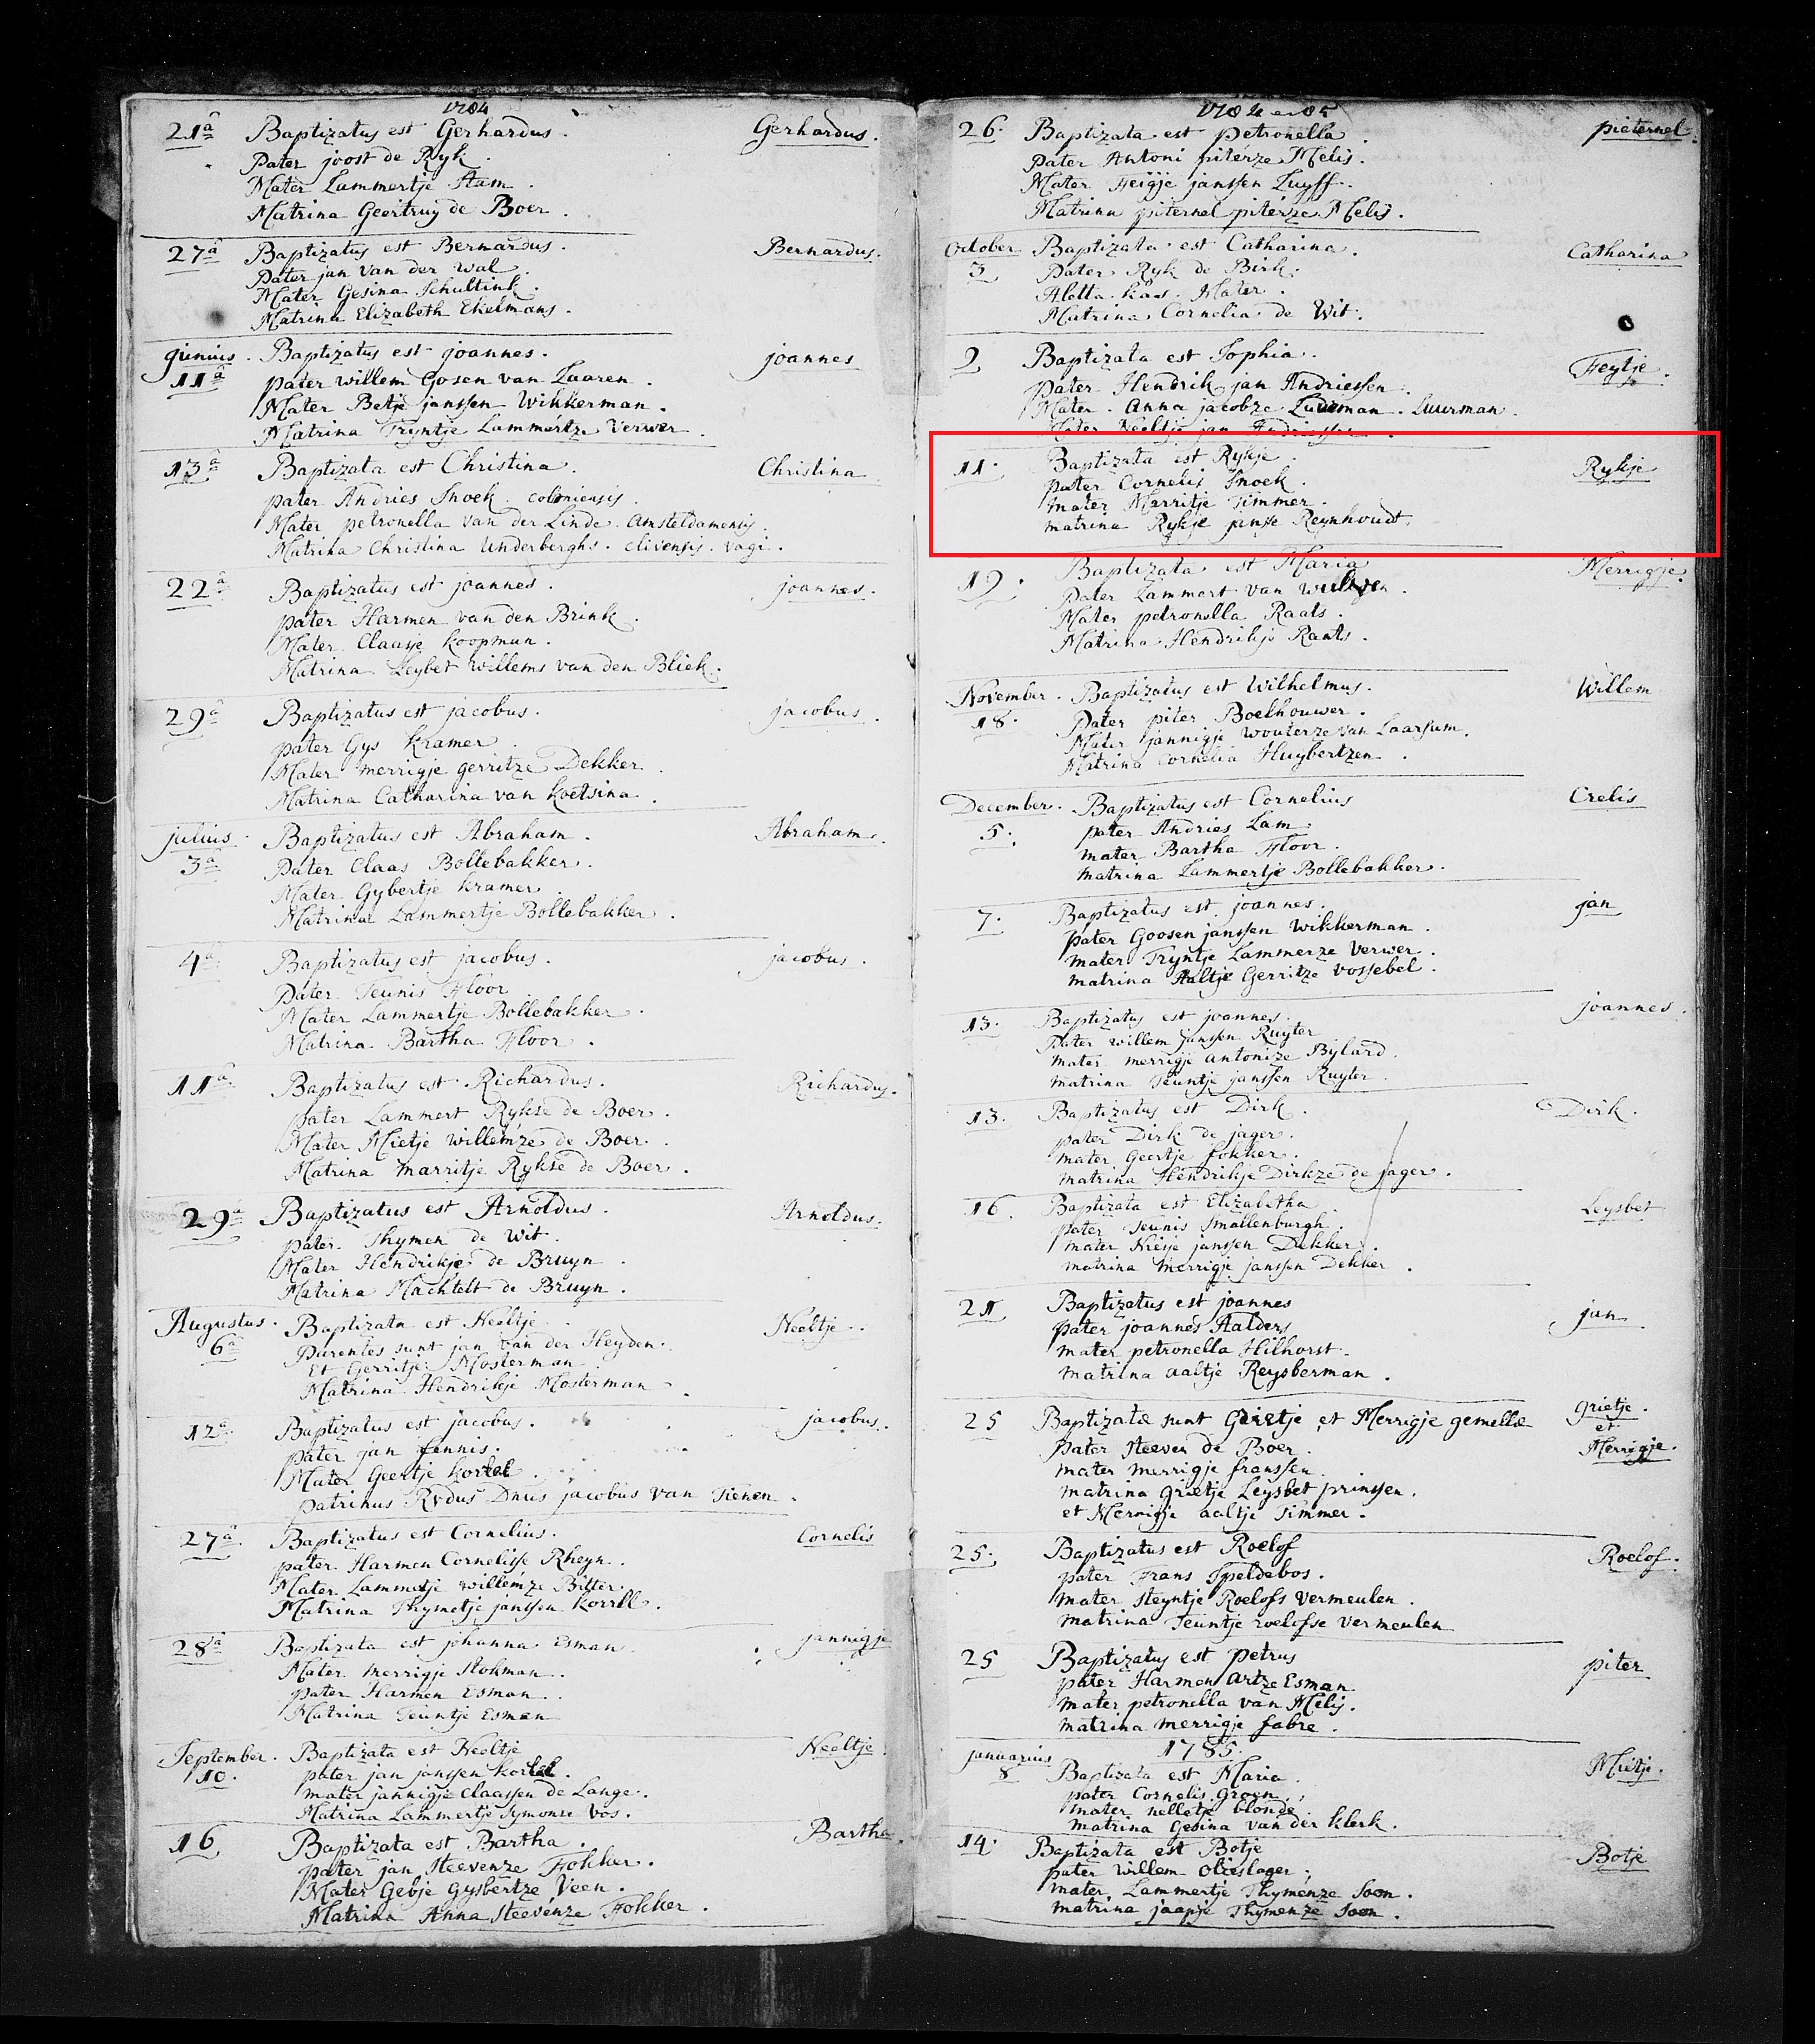 1784
21â Baptizatus est Gerhardus. Gerhardus.
Pater joost de Ryk.
Mater Lammertje Stam.
Matrina Geertruy de Boer.
27â Baptizatus est Bernardus. Bernardus.
Pater jan van der Wal.
Mater Gesina Schultink.
Matrina Elizabeth Ekelmans.
junius. Baptizatus est joannes. joannes
11â pater willem Gosen van Laaren.
Mater Betje janssen Wikkerman.
Matrina Tryntje Lammertze Verwer.
13â Baptizata est Christina. Christina
pater Andries Snoek. coloniensis.
Mater petronella van der Linde. Amsteldamensis.
Matrina Christina Underberghs. clivensis. vagi.
22â Baptizatus est joannes. joannes.
pater Harmen van den Brink.
Mater Claasje Koopman.
Matrina Leybet willems van den Bliek.
29â Baptizatus est jacobus. jacobus.
pater Gys Kramer
Mater merrigje gerritze Dekker.
Matrina Catharina van Koetsina.
julius. Baptizatus est Abraham. Abraham.
3â Pater Claas Bollebakker.
Mater Gybertje Kramer
Matrina Lammertje Bollebakker.
4â Baptizatus est jacobus. jacobus.
Pater Teunis Floor
Mater Lammertje Bollebakker.
Matrina Bartha Floor.
11â Baptizatus est Richardus. Richardus.
pater Lammert Rykse de Boer.
Mater Mietje willemze de Boer.
Matrina marritje Rykse de Boer.
29â Baptizatus est Arnoldus. Arnoldus.
pater Thymen de Wit.
Mater Hendrikje de Bruyn.
Matrina Machtelt de Bruyn.
Augustus. Baptizata est Neeltje. Neeltje.
6â Parentes sunt jan van der Heyden.
Et Gerritje Mosterman
Matrina Hendrikje Mosterman.
12â Baptizatus est jacobus. jacobus.
pater jan fennis.
Mater Geertje kortel.
patrinus Rvdus Dnus jacobus van Tienen.
27â Baptizatus est Cornelius. Cornelis
pater Harmen Cornelisse Rheyn.
Mater Lammetje willemze Bitter.
Matrina Thymetje janssen Korrll.
28â Baptizata est johanna Esman. jannigje
Mater merrigje Stokman.
pater Harmen Esman.
Matrina Teuntje Esman
September. Baptizata est Neeltje Neeltje.
10. pater jan janssen kortel.
mater jannigje Claassen de Lange.
Matrina Lammertje Symonse Vos.
16 Baptizata est Bartha. Bartha.
pater jan Steevenze Fokker.
Mater Gebje Gysbertze Veen.
Matrina Anna Steevenze Fokker.
1784 en 85
26. Baptizata est petronella. pieternel.
Pater Antoni piterze Melis.
Mater Feigje janssen Luyff.
Matrina piternel piterze Melis.
October Baptizata est Catharina. Catharina
3 Pater Ryk de Birk.
Aletta kaas. Mater.
Matrina Cornelia de Wit.
9 Baptizata est Sophia. Feytje.
Pater Hendrik jan Andriessen.
Mater. Anna jacobze Luurman. Luurman.
Mater Neeltje jan Andriessen.
11. Baptizata est Rykje. Rykje
pater Cornelis Snoek.
mater Marritje Timmer.
matrina Rykje janse Reynhoudt.
19. Baptizata est Maria Merrigje.
Pater Lammert van
Mater petronella Raats.
Matrina Hendrikje Raats.
November. Baptizatus est Wilhelmus. Willem
18. Pater piter Boelhouwer.
Mater jannigje wouterze van Laarsum.
Matrina Cornelia Huybertzen.
December. Baptizatus est Cornelius Crelis
5. pater Andries Lam.
mater Bartha Floor.
matrina Lammertje Bollebakker.
7. Baptizatus est joannes. jan
pater Goosen janssen Wikkerman.
mater Tryntje Lammerze Verwer.
matrina Aaltje Gerritze vossebel.
13. Baptizatus est joannes. joannes.
Pater willem janssen Ruyter
mater merrigje antonize Bylard.
matrina Teuntje janssen Ruyter.
13. Baptizatus est Dirk. Dirk.
pater Dirk de jager.
mater Geertje fokker.
matrina Hendrikje Dirkze de jager.
16. Baptizata est Elizabetha Leysbet
pater Teunis Smallenburgh.
mater Niesje janssen Dekker.
matrina Merrigje janssen Dekker.
21 Baptizatus est joannes jan
pater joannes Halders
mater petronella Hilhorst.
matrina aaltje Reysberman.
25 Baptizatæ sunt Grietje et Merrigje gemellæ grietje. et Merrigje.
pater Steeven de Boer.
mater merrigje franssen.
matrina grietje Leysbet prinssen.
et Merrigje aaltje Timmer.
25. Baptizatus est Roelof Roelof.
pater Frans Speldebos.
mater Steyntje Roelofs Vermeulen.
matrina Teuntje roelofse vermeulen
25 Baptizatus est petrus piter
pater Harmen artze Esman
mater petronella van Melis.
matrina merrigje fabre.
1785.
januarius Baptizata est Maria. Mietje.
8 pater Cornelis Groen.
mater nelletje blonde
matrina Gesina van der klerk.
14. Baptizata est Botje Botje
pater willem olieslager.
mater Lammertje Thymenze Soon.
matrina jaapje Thymenze Soon.